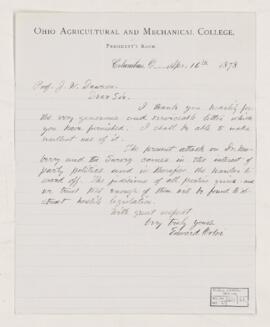 OHIO AGRICULTURAL AND MECHANICAL COLLEGE.
PRESIDENT'S ROOM.
Columbus, O., Apr. 16th 1878
Prof. J. W. Dawson.
Dear Sir.
I thank you heartily for
the very generous and serviceable letter which
you have furnished. I shall be able to make
excellent use of it.
The present attack on Dr. New-
berry and the Survey comes in the interest of
party politics, and is therefore the harder to
ward off. The possessions of all parties
we trust that enough of them are to be found to de-
feat hostile legislation.
With great respect
Very truly yours
Edward Orton